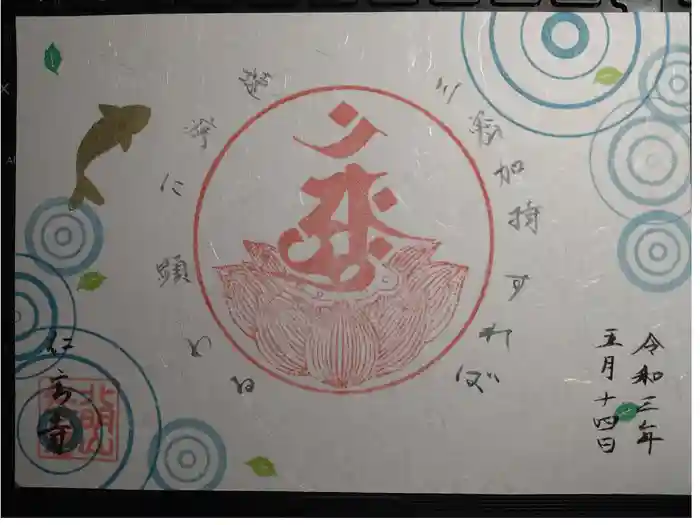 三密加持すれば
速疾に顕わる
令和三年
五月十四日
仁玄寺